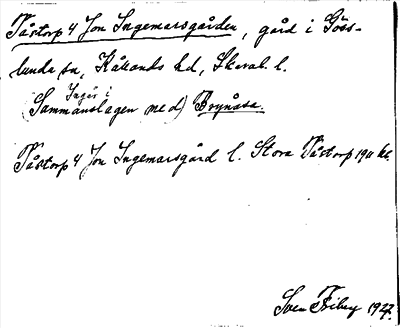 Tåstorp 4 Jon Ingemarsgården, gård i Göss-
lunda sn, Kållands hd, Skarab. l.
Ingår i
(Sammanslagen med) Brynåsa.
Tåstorp 4 Jon Ingemarsgård l. Stora Tåstorp 1911
Sven Friberg 1927.